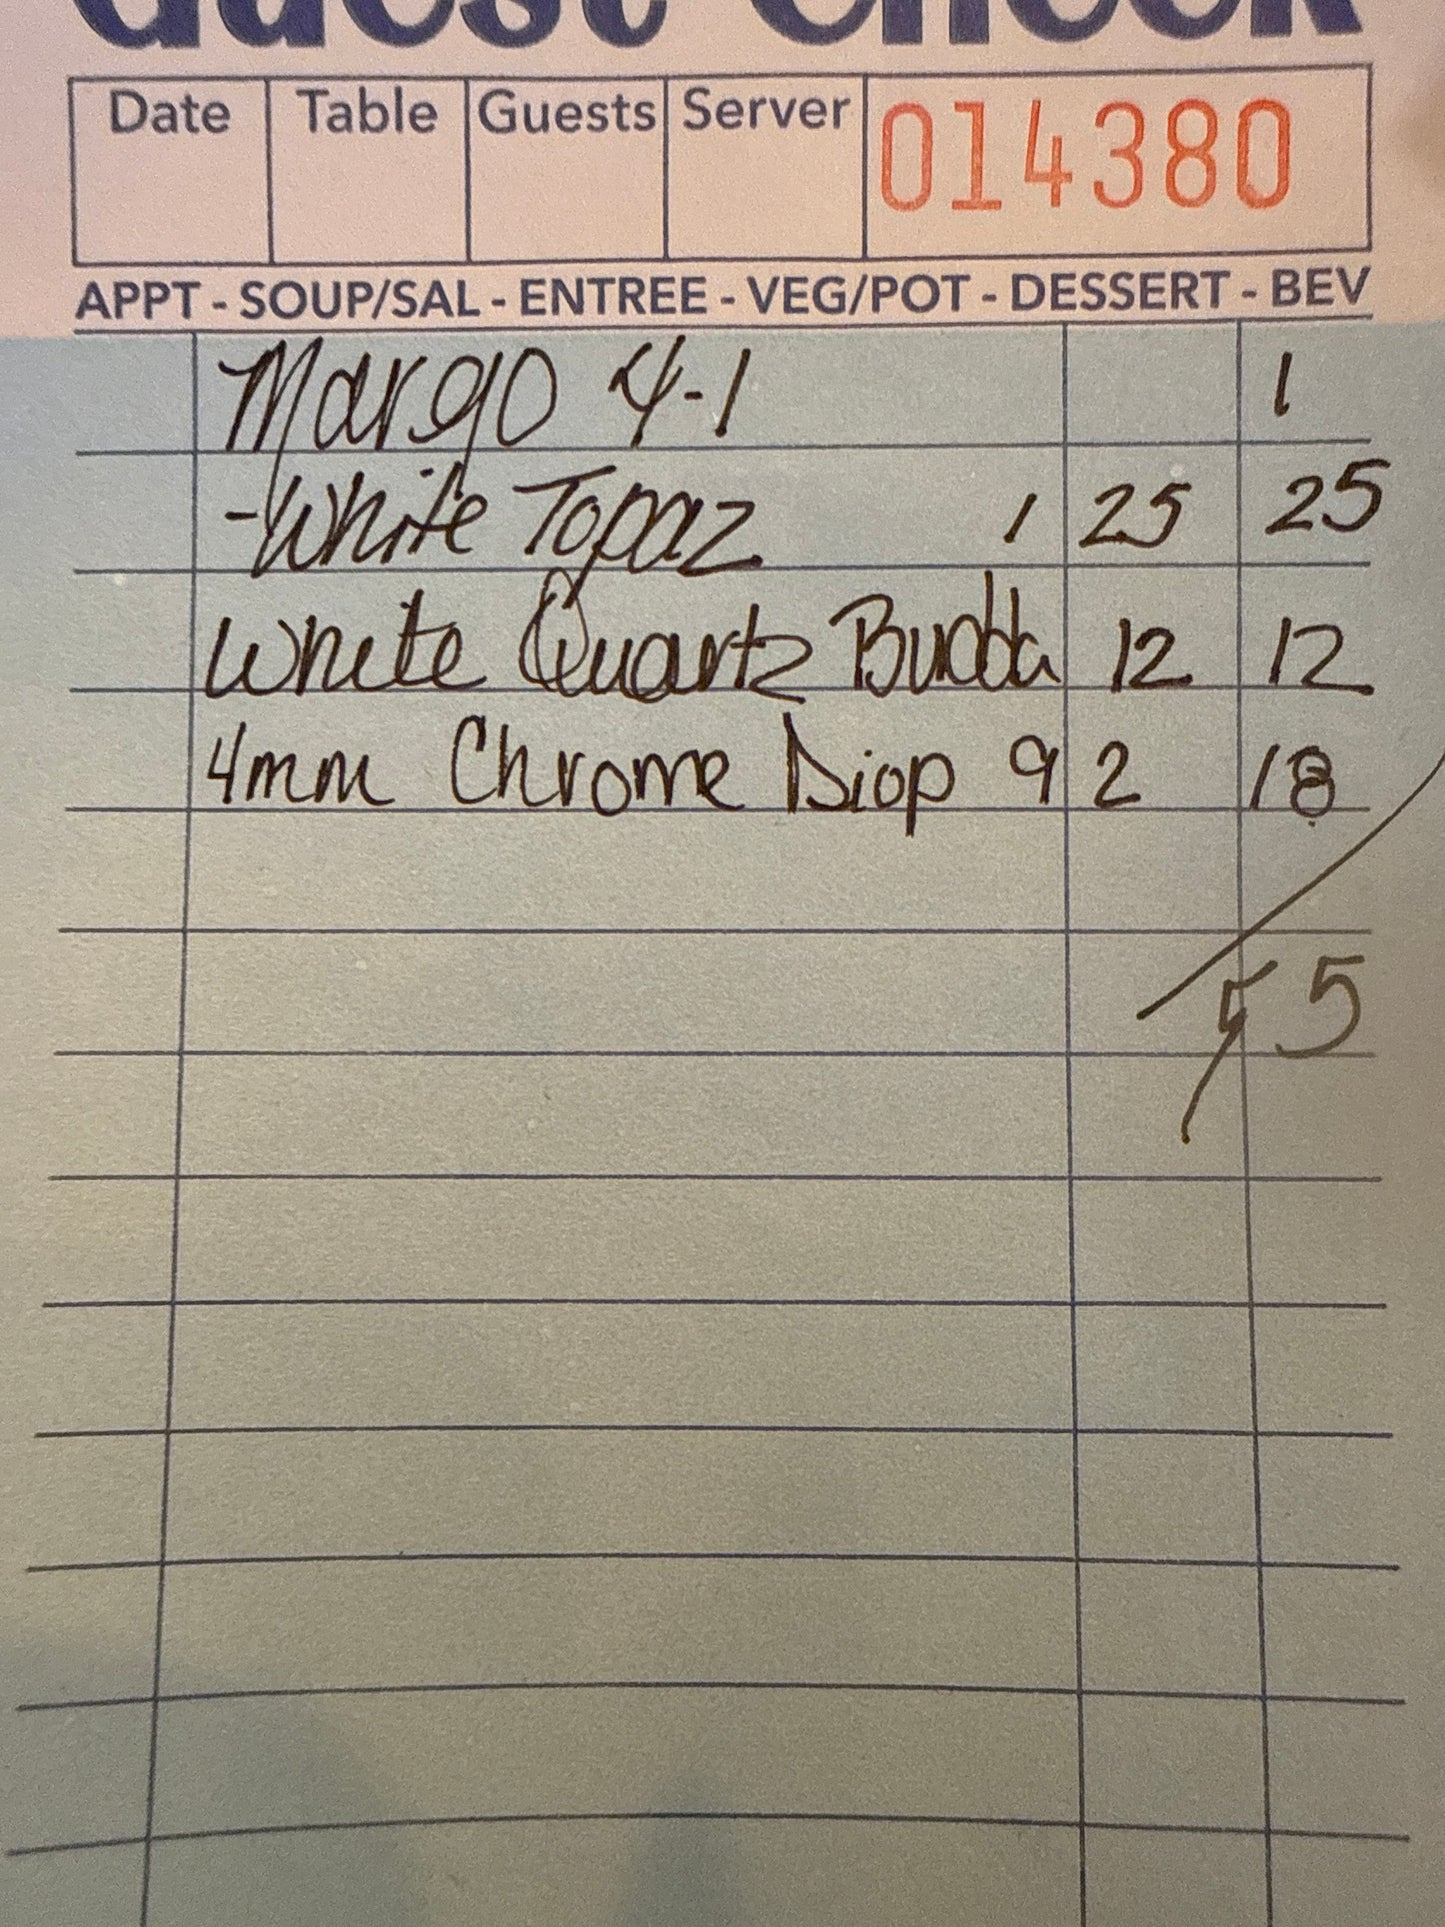 Guest Check
Date Table Guests Server 014380
APPT - SOUP/SAL - ENTREE - VEG/POT - DESSERT - BEV
Margo 4-1 1
-White Topaz 1 25 25
White Quartz Budda 12 12
4mm Chrome Diop 9 2 18
55